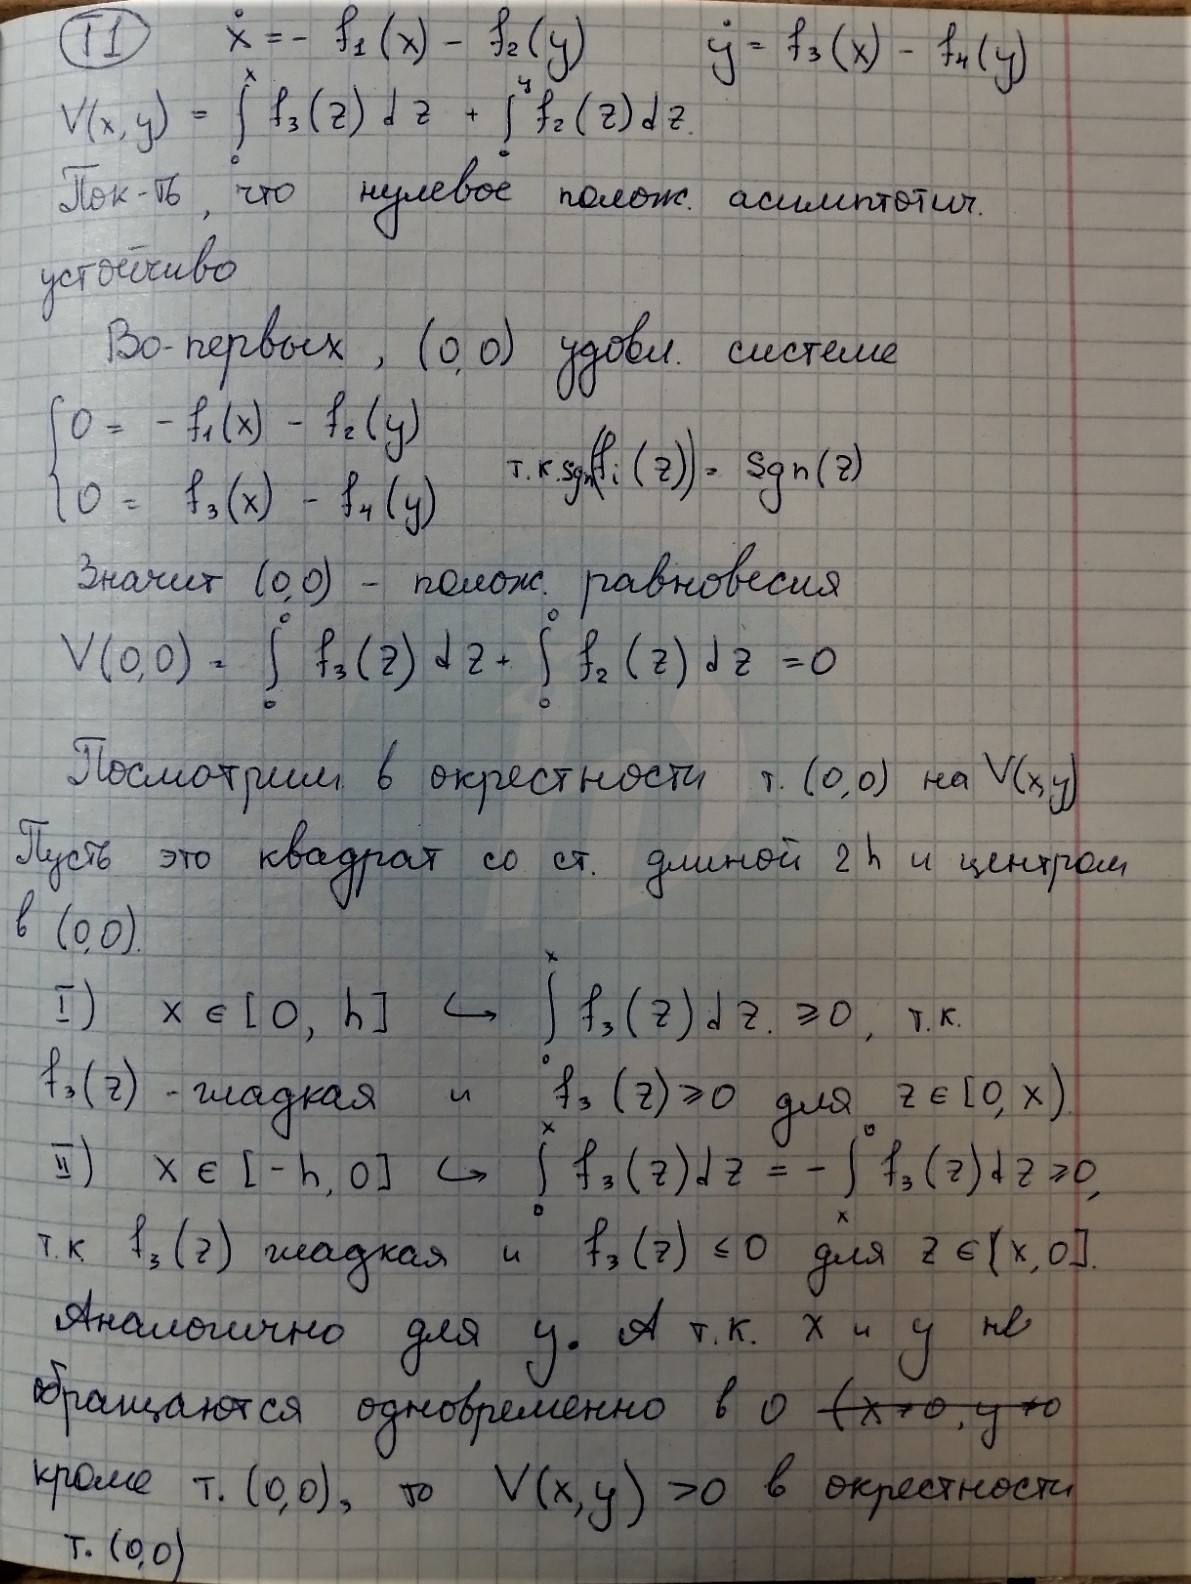 T1 ẋ = - f₁(x) - f₂(y) ẏ = f₃(x) - f₄(y)
V(x,y) = ∫₀ˣ f₃(z)dz + ∫₀ʸ f₂(z)dz.
Пок-ть, что нулевое полож. асимптотич.
устойчиво
Во-первых, (0,0) удовл. системе
{ 0 = - f₁(x) - f₂(y)
0 = f₃(x) - f₄(y) т.к. sgn(fᵢ(z)) = sgn(z)
Значит (0,0) - полож. равновесия
V(0,0) = ∫₀⁰ f₃(z)dz + ∫₀⁰ f₂(z)dz = 0
Посмотрим в окрестности т. (0,0) на V(x,y)
Пусть это квадрат со ст. длиной 2h и центром
в (0,0).
I) x ∈ [0, h] ↪ ∫₀ˣ f₃(z)dz. ≥ 0, т.к.
f₃(z) - гладкая и f₃(z) ≥ 0 для z ∈ [0, x)
II) x ∈ [-h, 0] ↪ ∫₀ˣ f₃(z)dz = - ∫ₓ⁰ f₃(z)dz ≥ 0,
т.к f₃(z) гладкая и f₃(z) ≤ 0 для z ∈ [x, 0].
Аналогично для y. А т.к. x и y не
обращаются одновременно в 0
кроме т. (0,0), то V(x,y) > 0 в окрестности
т. (0,0)